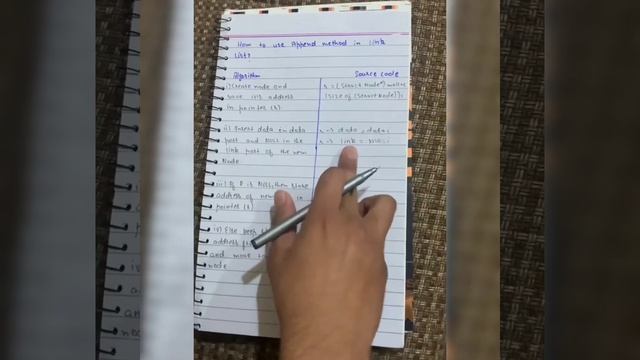 How to use Append method in link
list?
Algorithm
i) Create node and
save its address
in pointer (r)
ii) Insert data in data
part and NULL in the
link part of the new
Node
iii) If P is NULL, then store
address of new in
pointer (
iv) Else keep
address
and move
node
Source code
r = (struct Node*) malloc
(size of (struct Node));
r -> data = data;
r -> link = NULL;